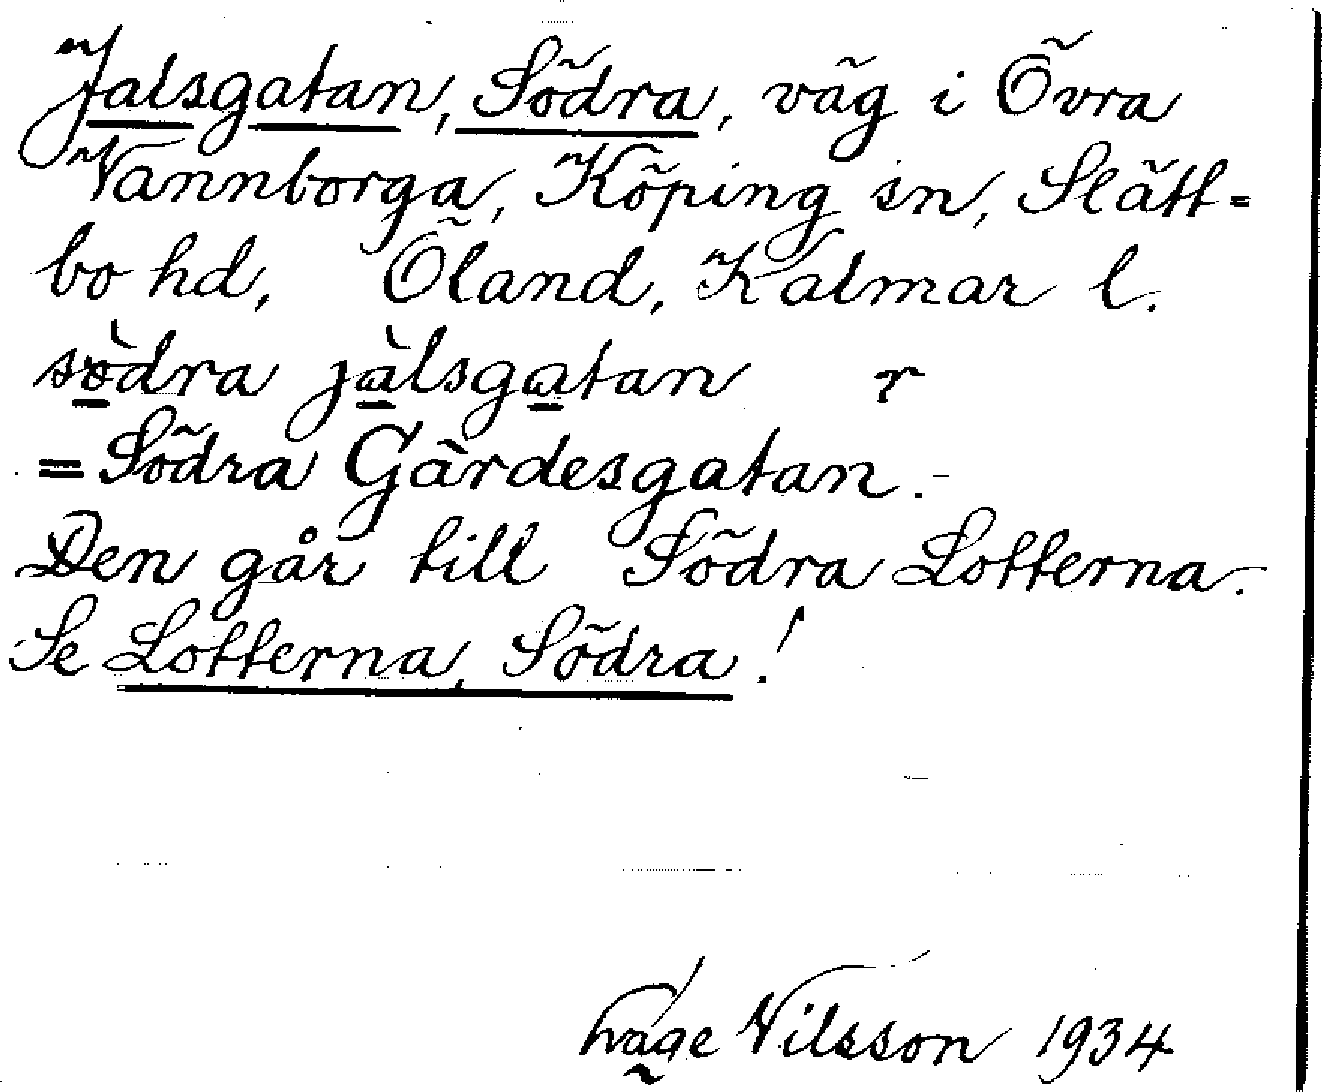 Jalsgatan, Södra, väg i Övra
Vannborga, Köping sn, Slätt=
bo hd, Öland, Kalmar l.
sòdra jàlsgatan r
= Södra Gärdesgatan.-
Den går till Södra Lotterna.
Se Lotterna, Södra!
Nilsson 1934